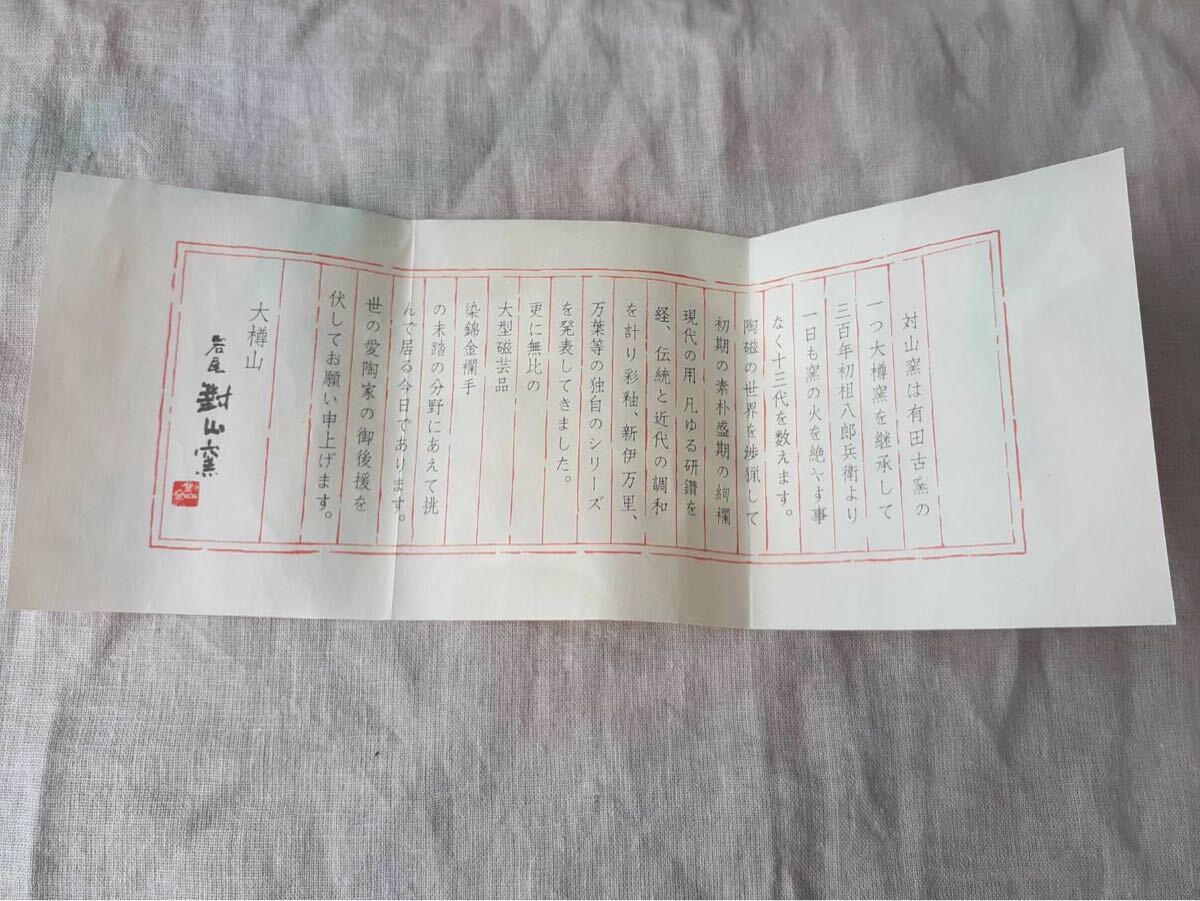 対山窯は有田古窯の
一つ大樽窯を継承して
三百年初祖八郎兵衛より
一日も窯の火を絶やす事
なく十三代を数えます。
陶磁の世界を渉猟して
初期の素朴盛期の絢襴
現代の用凡ゆる研鑽を
経、伝統と近代の調和
を計り彩釉、新伊万里、
万葉等の独自のシリーズ
を発表してきました。
更に無比の
大型磁芸品
染錦金襴手
の未踏の分野にあえて挑
んで居る今日であります。
世の愛陶家の御後援を
伏してお願い申上げます。
大樽山
岩尾 對山窯